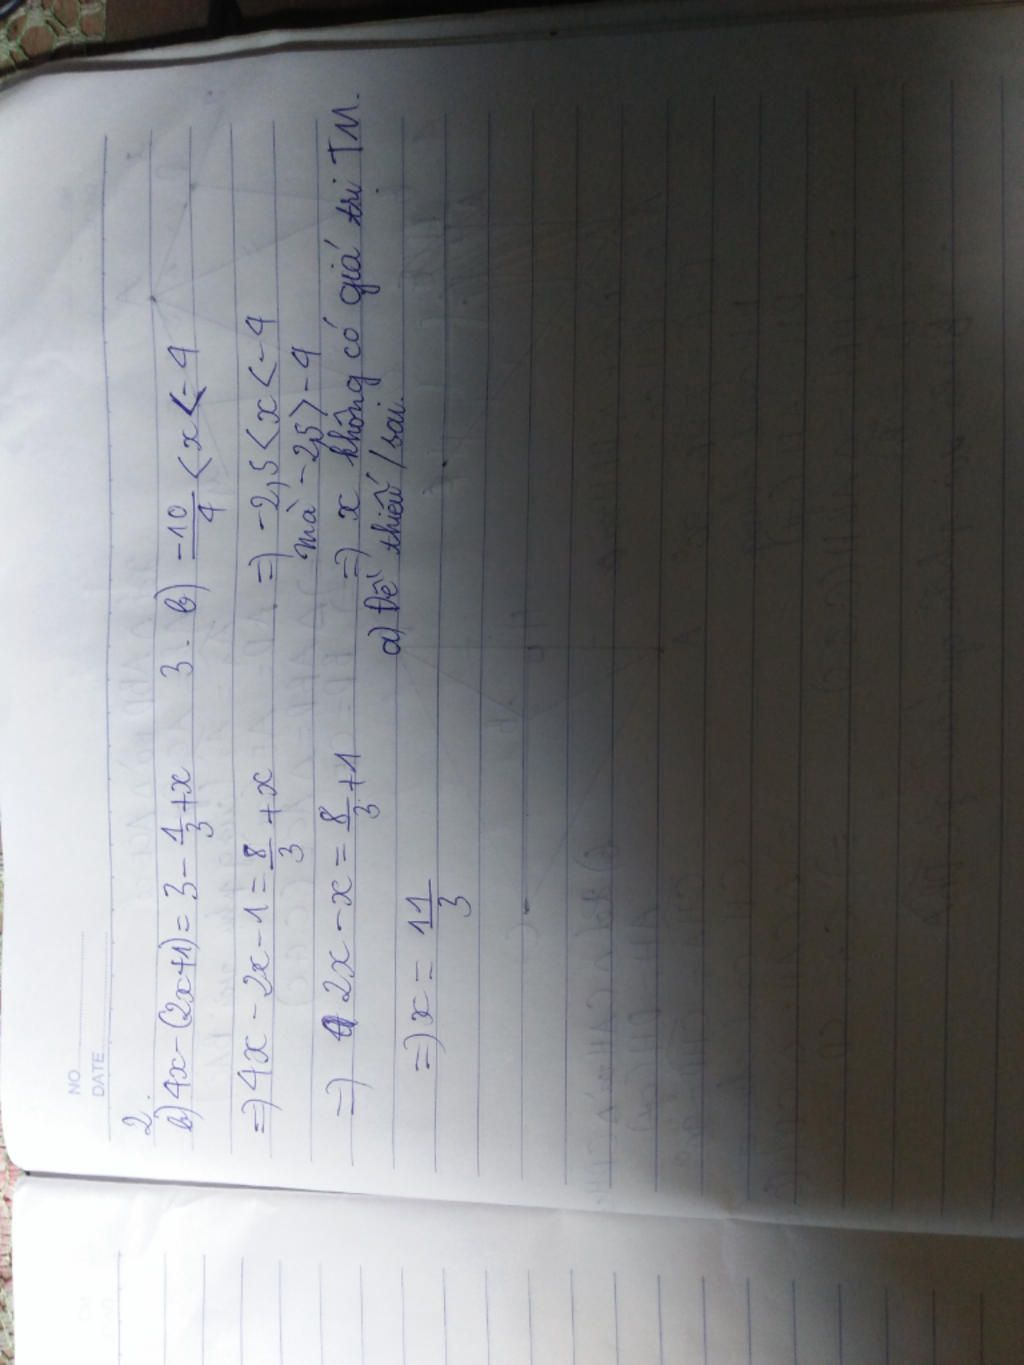 NO
DATE
2.
b) 4x - (2x+1) = 3 - 1/3 + x
=) 4x - 2x - 1 = 8/3 + x
=) 2x - x = 8/3 + 1
=) x = 11/3
3. b) -10/4 < x < -4
=) -2,5 < x < -4
mà -2,5 > -4
=) x không có giá trị TM.
a) Đề thiếu / sai.